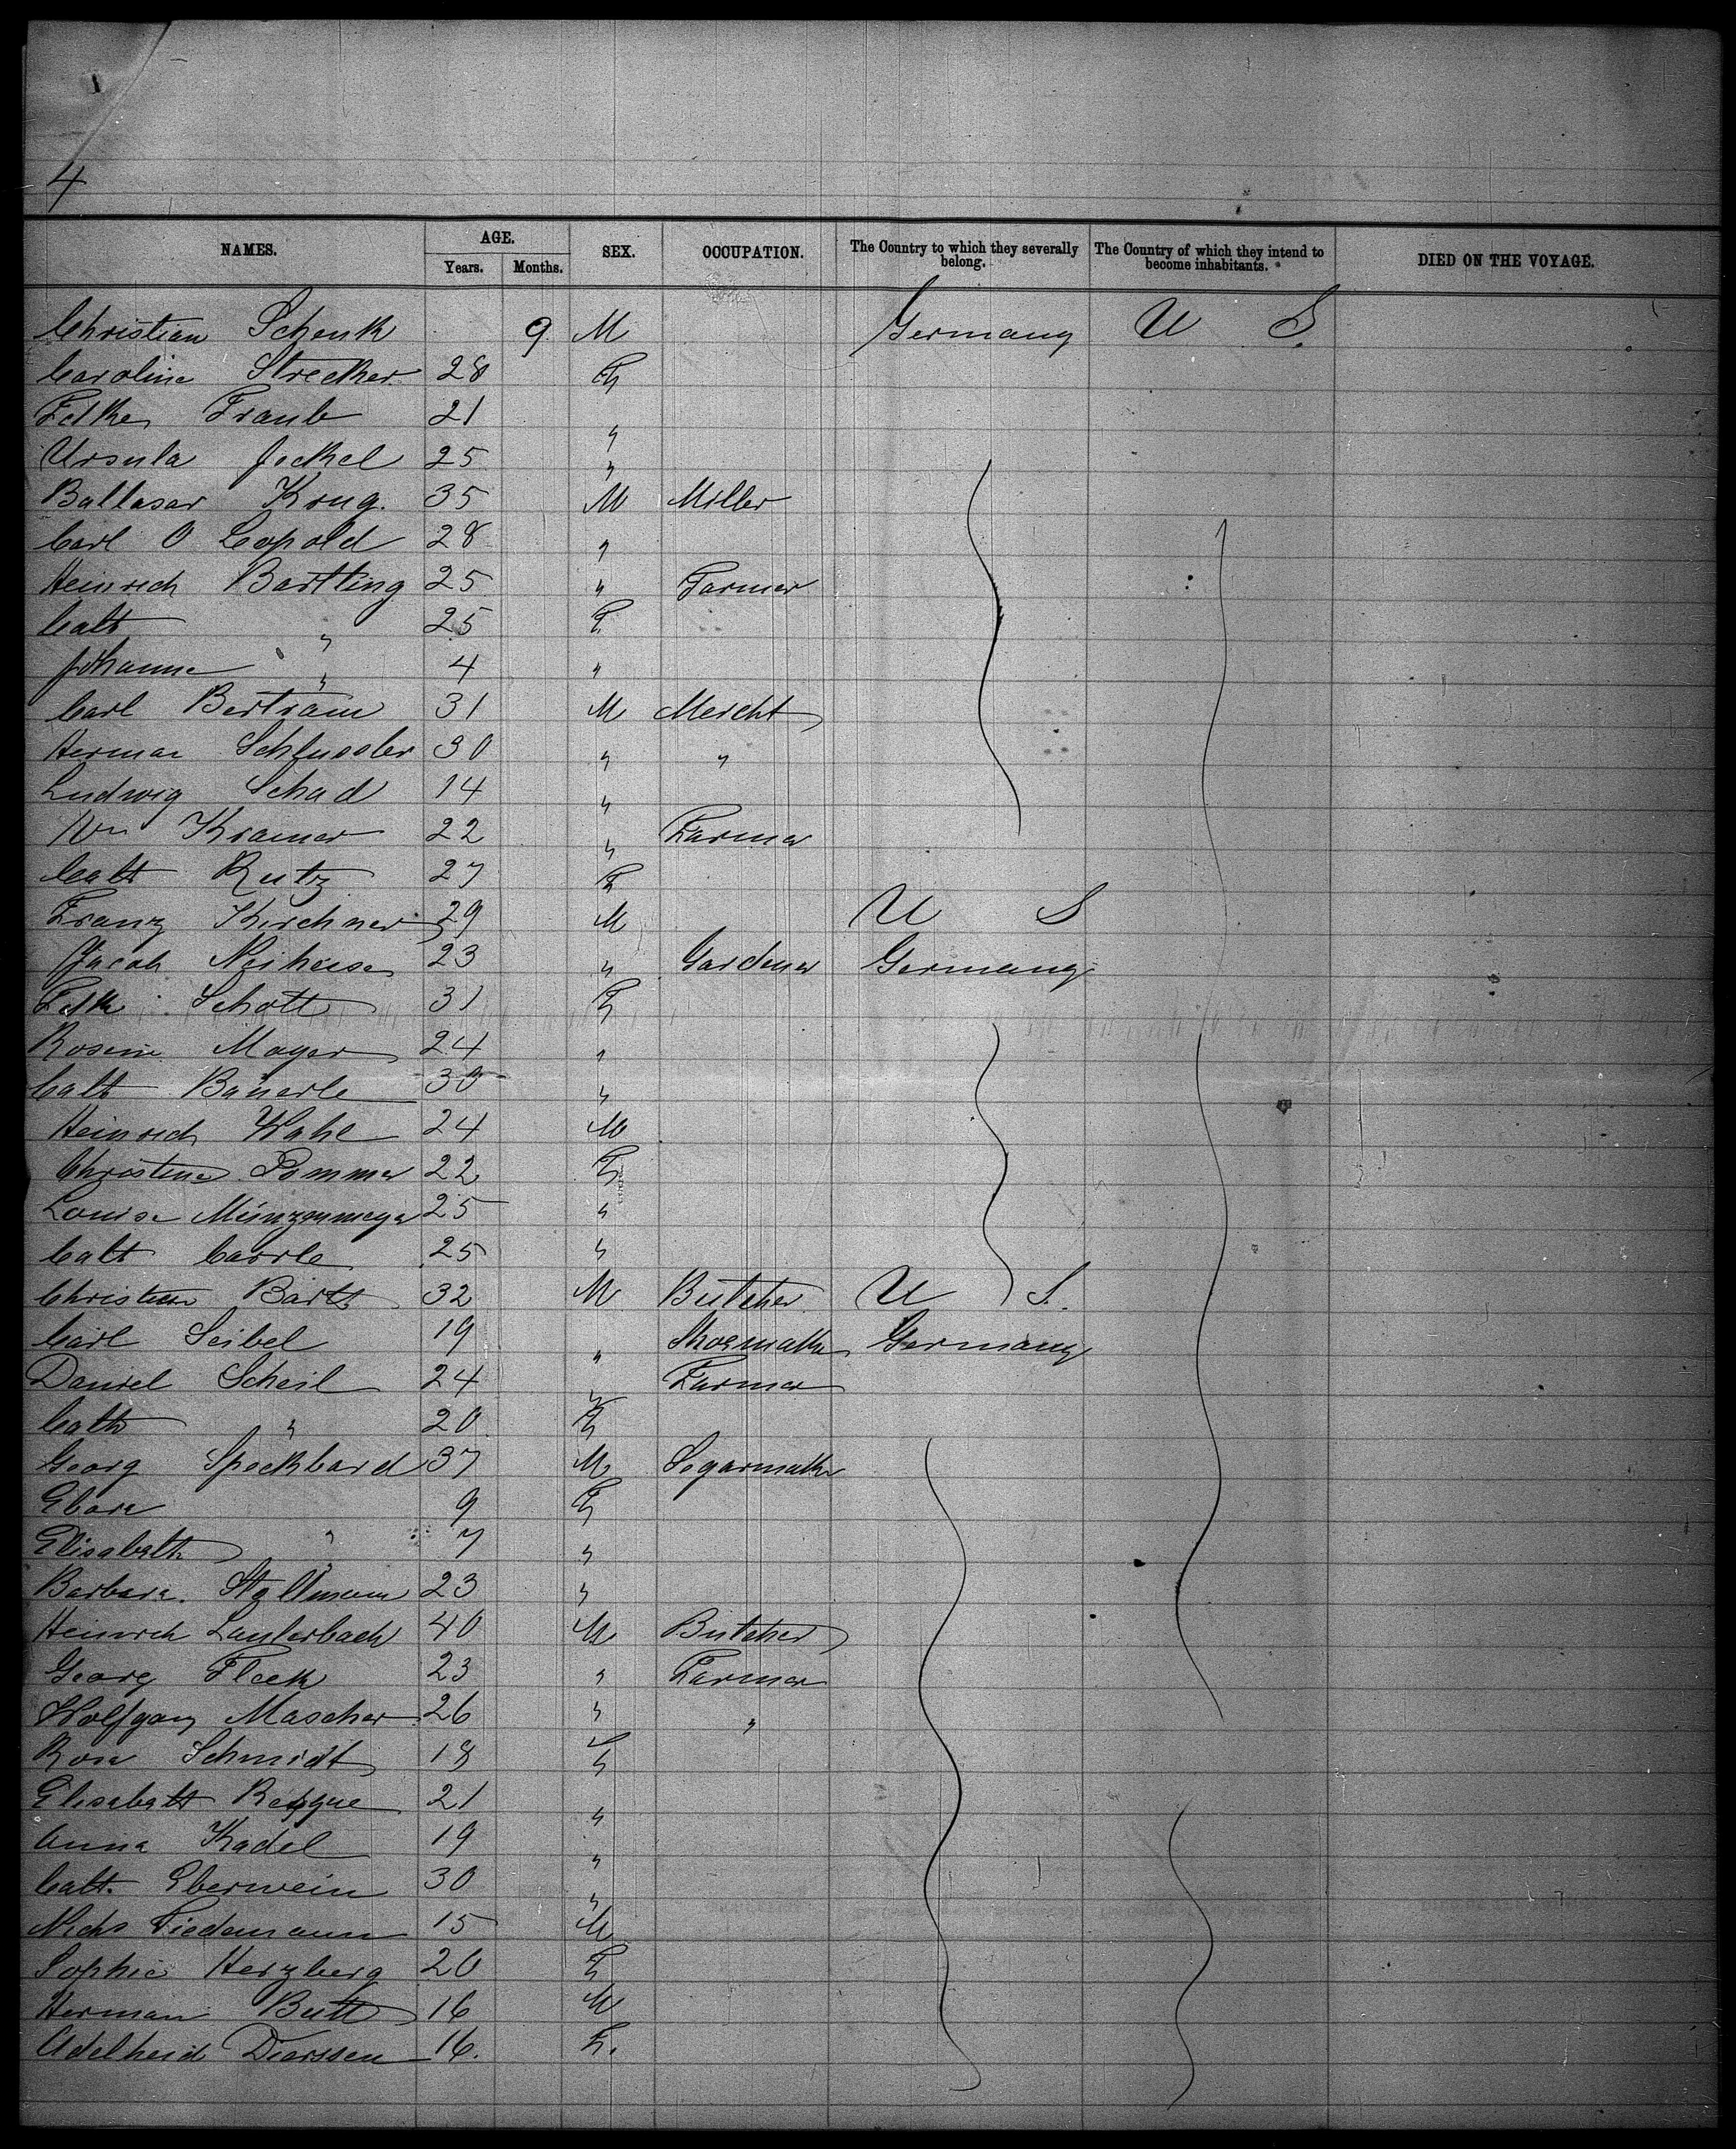 4
NAMES. AGE. SEX. OCCUPATION. The Country to which they severally belong. The Country of which they intend to become inhabitants. DIED ON THE VOYAGE.
Years. Months.
Christian Schenk 9 M Germany U S.
Caroline Strecker 28 F
Traub 21 "
Ursula Jeckel 25 "
Baltasar Krug. 35 M Miller
Carl O Leopold 28 "
Heinrich Bartling 25 " Farmer
Cath " 25 F
Johanne " 4 "
Carl Bertram 31 M Mercht
Herman Schlussler 30 " "
Ludwig Schad 14 "
Wm Kramer 22 " Farmer
Cath Rutz 27 F
Franz Kirchner 29 M U S
Jacob 23 " Gardener Germany
Schott 31 F
Rosine Mayer 24 "
Cath Bäuerle 30 "
Heinrich Wahl 24 M
Christine Pommer 22 F
Louise Münzenmayer 25 "
Cath Carrle 25 "
Christian 32 M Butcher U S.
Carl Seibel 19 " Shoemaker Germany
Daniel Scheil 24 " Farmer
Cath " 20 F
Georg Speckhard 37 M Segarmaker
9 F
Elisabeth " 7 "
Barbara 23 "
Heinrich Lauterbach 40 M Butcher
Georg Fleck 23 " Farmer
Wolfgang Mascher 26 " "
Rosa Schmidt 18 F
Elisabeth 21 "
Anna Kadel 19 "
Cath. Eberwein 30 "
Nichs Tiedemann 15 M
Sophie Herzberg 20 F
Herman Butt 16 M
Adelheid Dierssen 16. F.